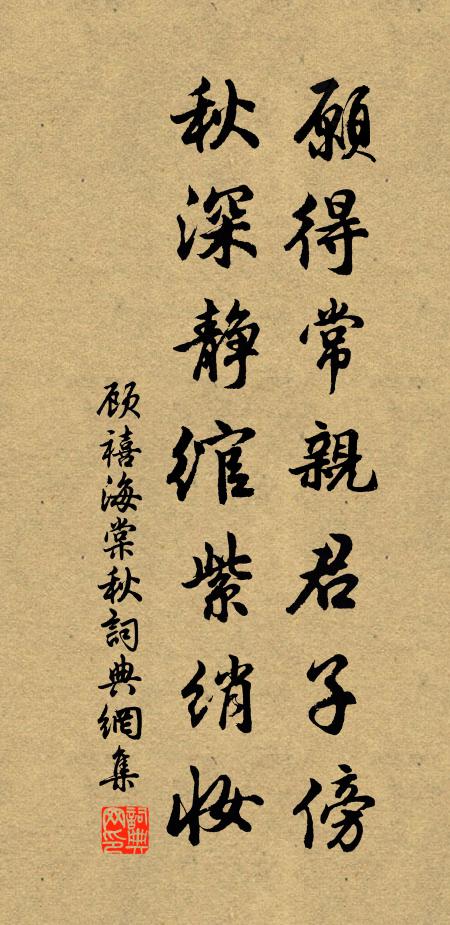 願得常親君子傍
秋深靜綰紫綃妝
顾禧海棠秋詞典網集
詞典网印